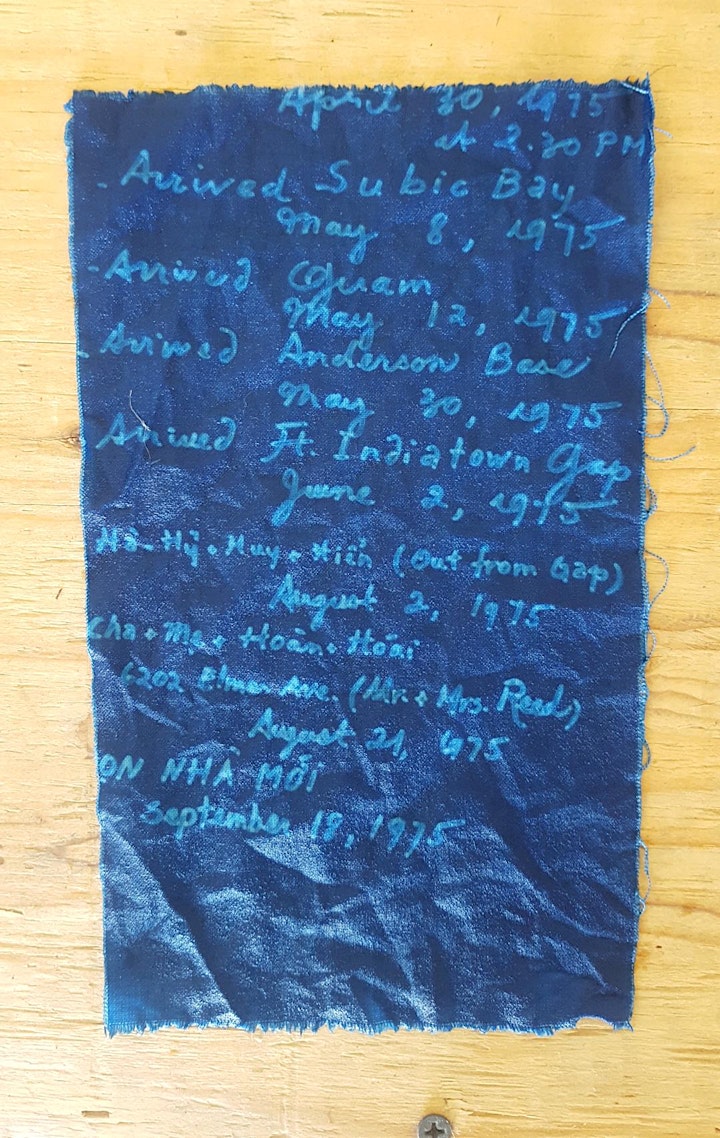 April 30, 1975
at 2.30 PM
- Arrived Subic Bay
May 8, 1975
- Arrived Guam
May 12, 1975
- Arrived Anderson Base
May 30, 1975
Arrived Ft. Indiatown Gap
June 2, 1975
Hà + Hỷ + Huy + Hiển (Out from Gap)
August 2, 1975
Cha + Mẹ + Hoàn + Hoài
6202 Elmer Ave. (Mr. + Mrs. Reed)
August 21, 1975
ON NHÀ MỚI
September 18, 1975